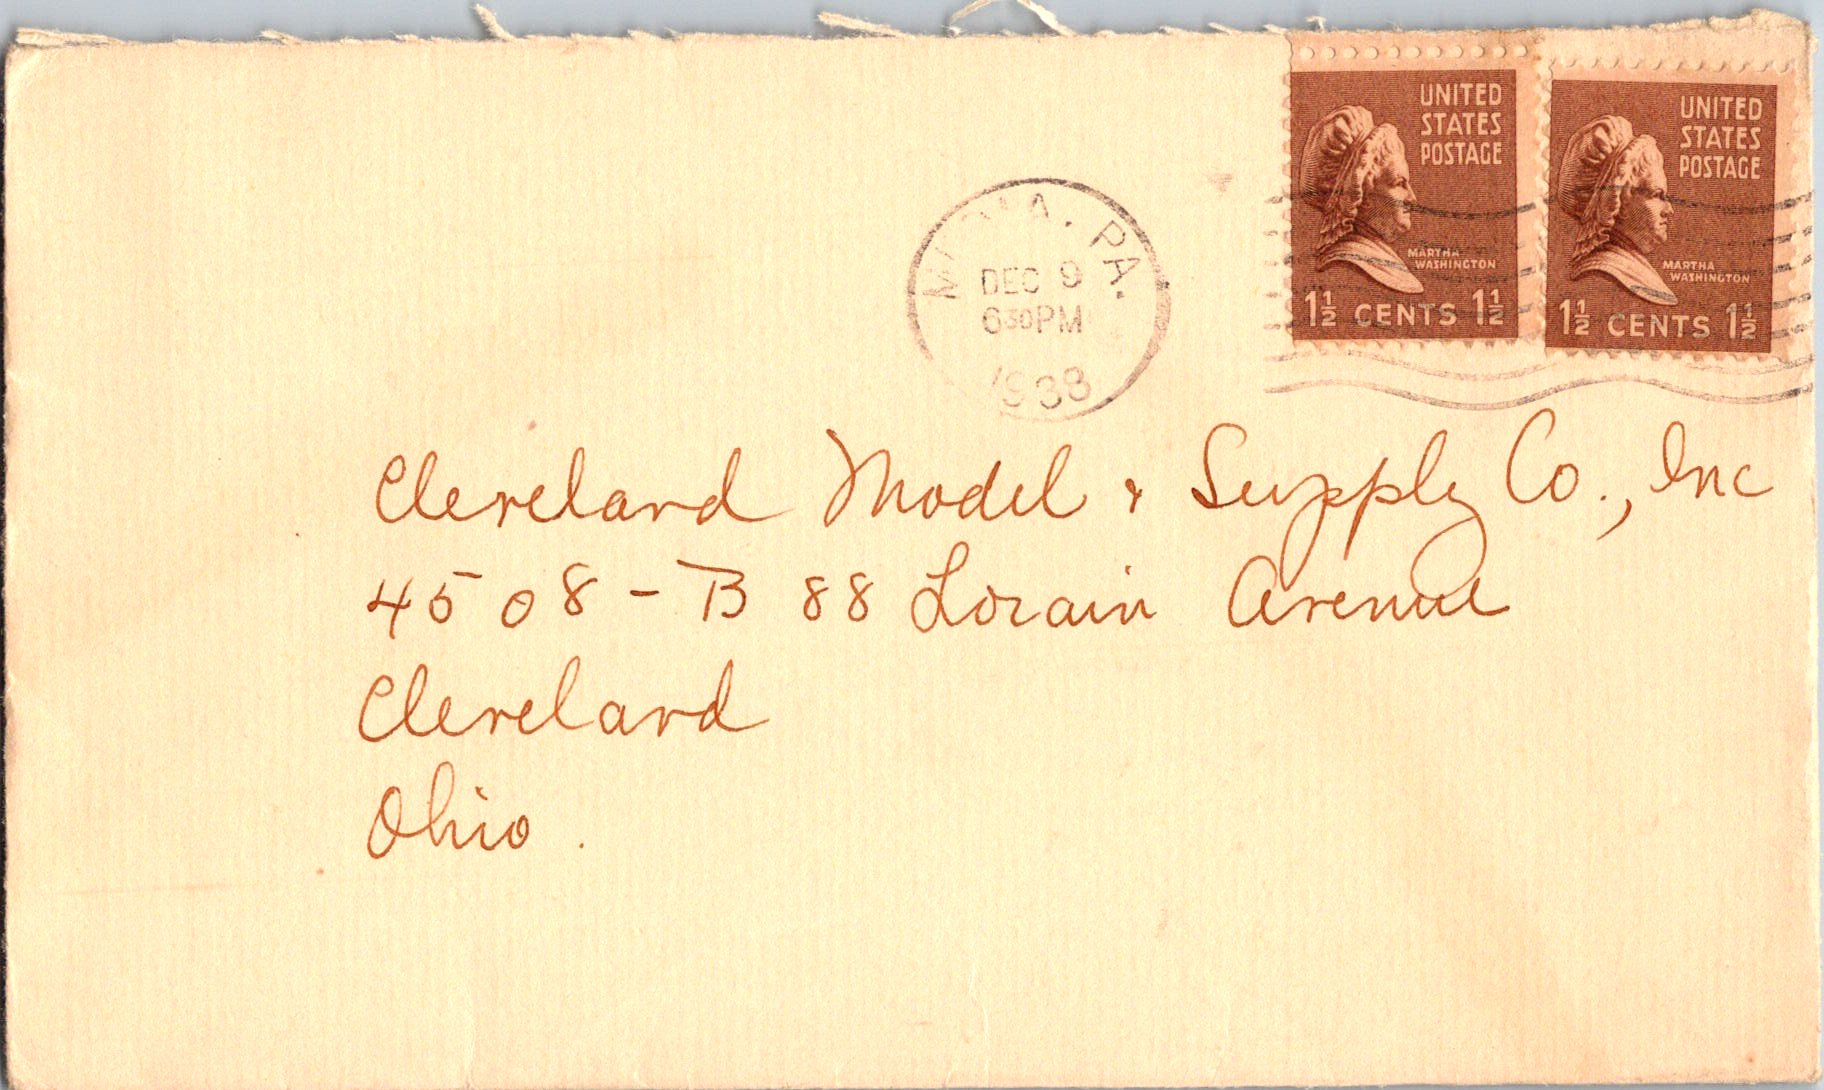 UNITED
STATES
POSTAGE
MARTHA
WASHINGTON
1½ CENTS 1½
UNITED
STATES
POSTAGE
MARTHA
WASHINGTON
1½ CENTS 1½
PA.
DEC 9
630PM
1938
Cleveland Model & Supply Co., Inc
4508-B 88 Lorain Avenue
Cleveland
Ohio.